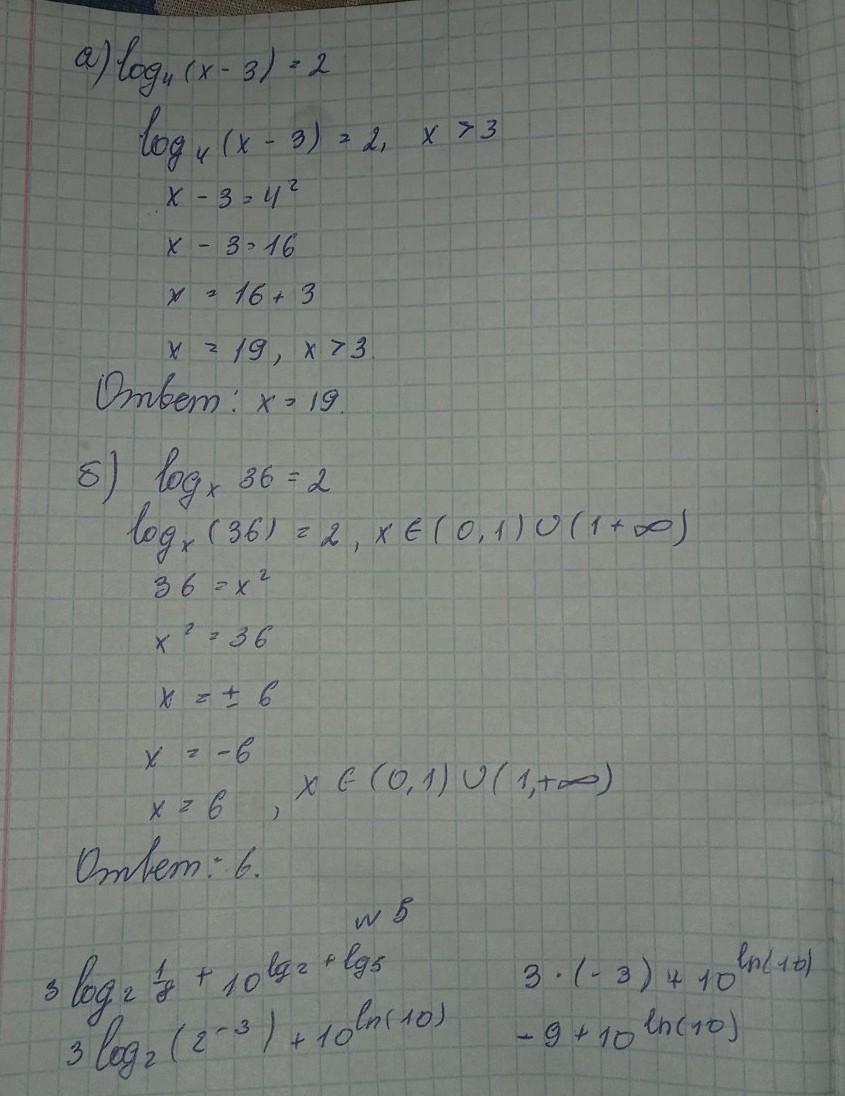 а) log₄(x - 3) = 2
log₄(x - 3) = 2, x > 3
x - 3 = 4²
x - 3 = 16
x = 16 + 3
x = 19, x > 3
Ответ: x = 19.
б) logₓ 36 = 2
logₓ(36) = 2, x ∈ (0,1) ∪ (1 + ∞)
36 = x²
x² = 36
x = ± 6
x = -6
x = 6 , x ∈ (0,1) ∪ (1,+∞)
Ответ: 6.
N 5
3 log₂ 1/8 + 10^(lg2 + lg5)
3 log₂(2⁻³) + 10^(ln(10))
3 · (-3) + 10^(ln(10))
-9 + 10^(ln(10))